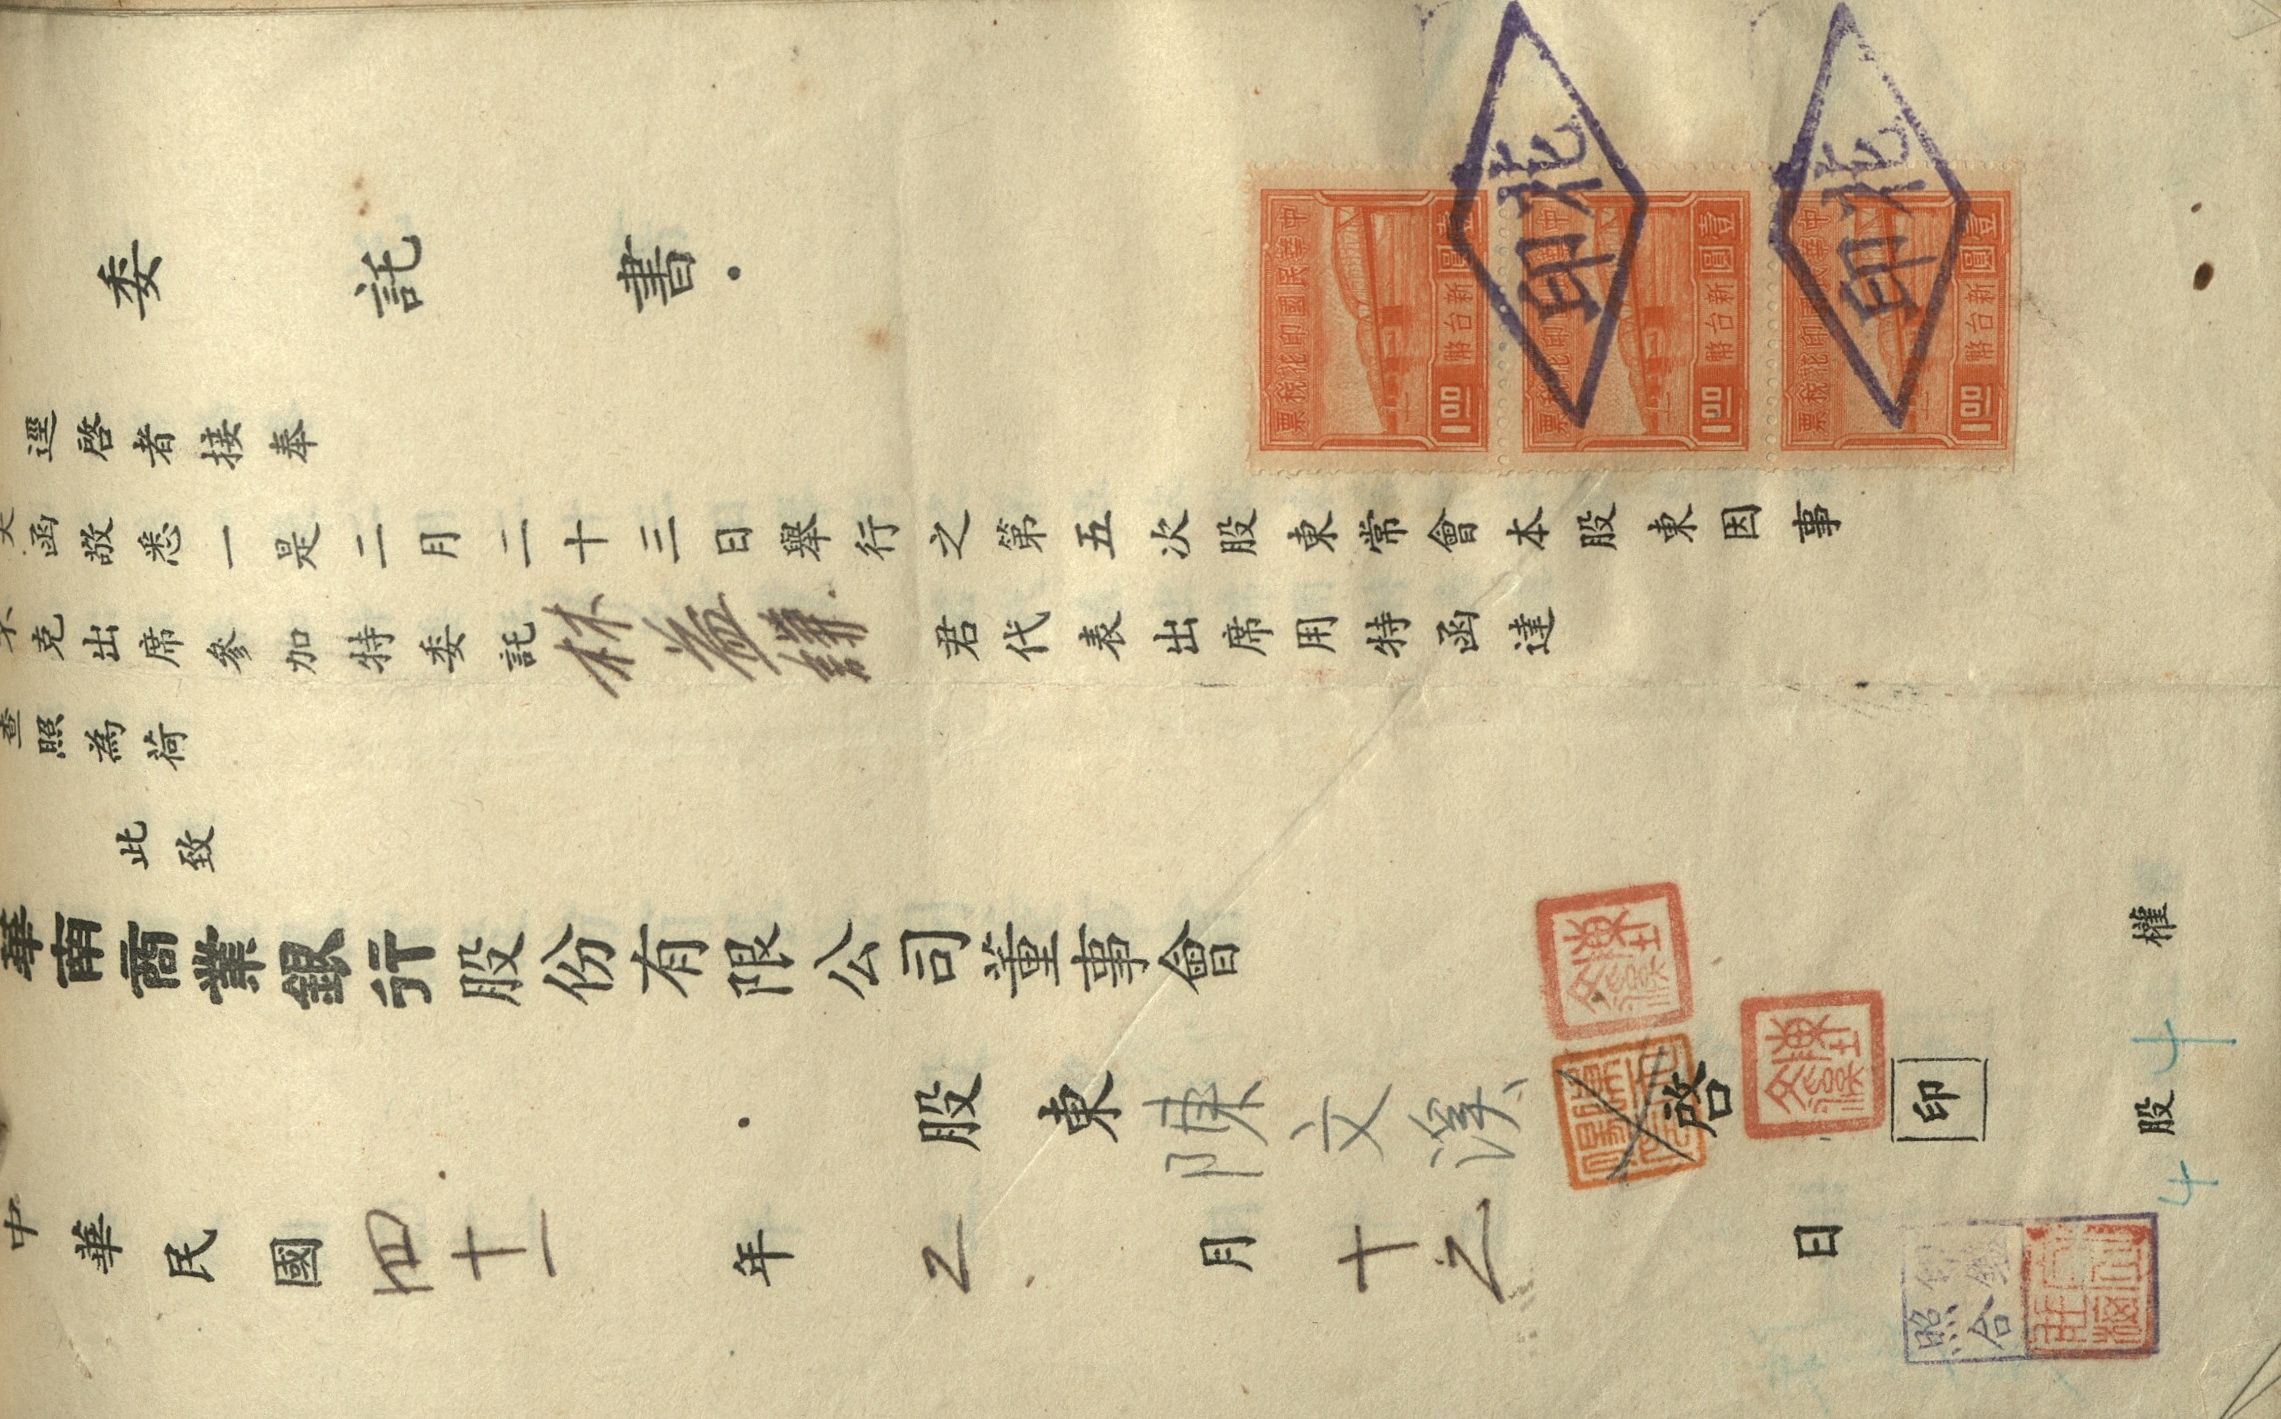 委託書
逕啓者接奉
函敬悉一是二月二十三日舉行之第五次股東常會本股東因事
克出席參加特委託林益謙君代表出席用特函達
查照為荷
此致
華南商業銀行股份有限公司董事會
股東陳文溪啓
印
中華民國四十一年2月十2日
股4
權4
中華民國印花稅票
壹圓
新台幣
1.00
中華民國印花稅票
圓
新台幣
1.00
中華民國印花稅票
壹圓
新台幣
1.00
北印
北印
印鑑照合